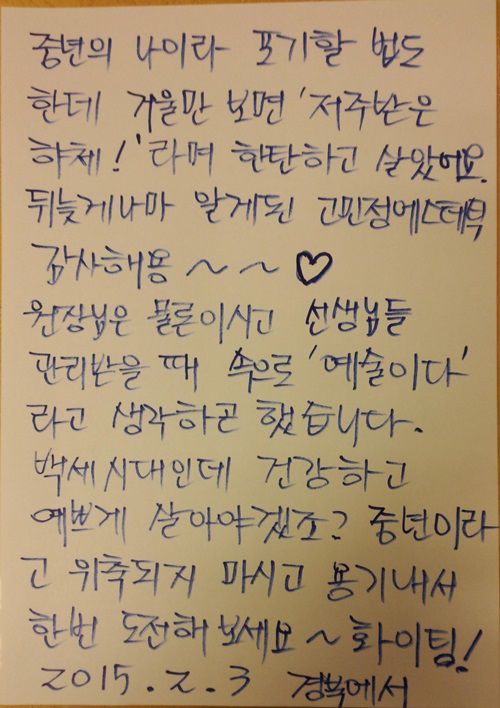 중년의 나이라 포기할 법도
한데 거울만 보면 '저주받은
하체!' 라며 한탄하고 살았어요.
뒤늦게나마 알게된 고민정에스테틱
감사해용 ~ ~ ♡
원장님은 물론이시고 선생님들
관리받을 때 속으로 '예술이다'
라고 생각하곤 했습니다.
백세시대인데 건강하고
예쁘게 살아야겠죠? 중년이라
고 위축되지 마시고 용기내서
한번 도전해 보세요 ~ 화이팅!
2015. 2. 3 경북에서